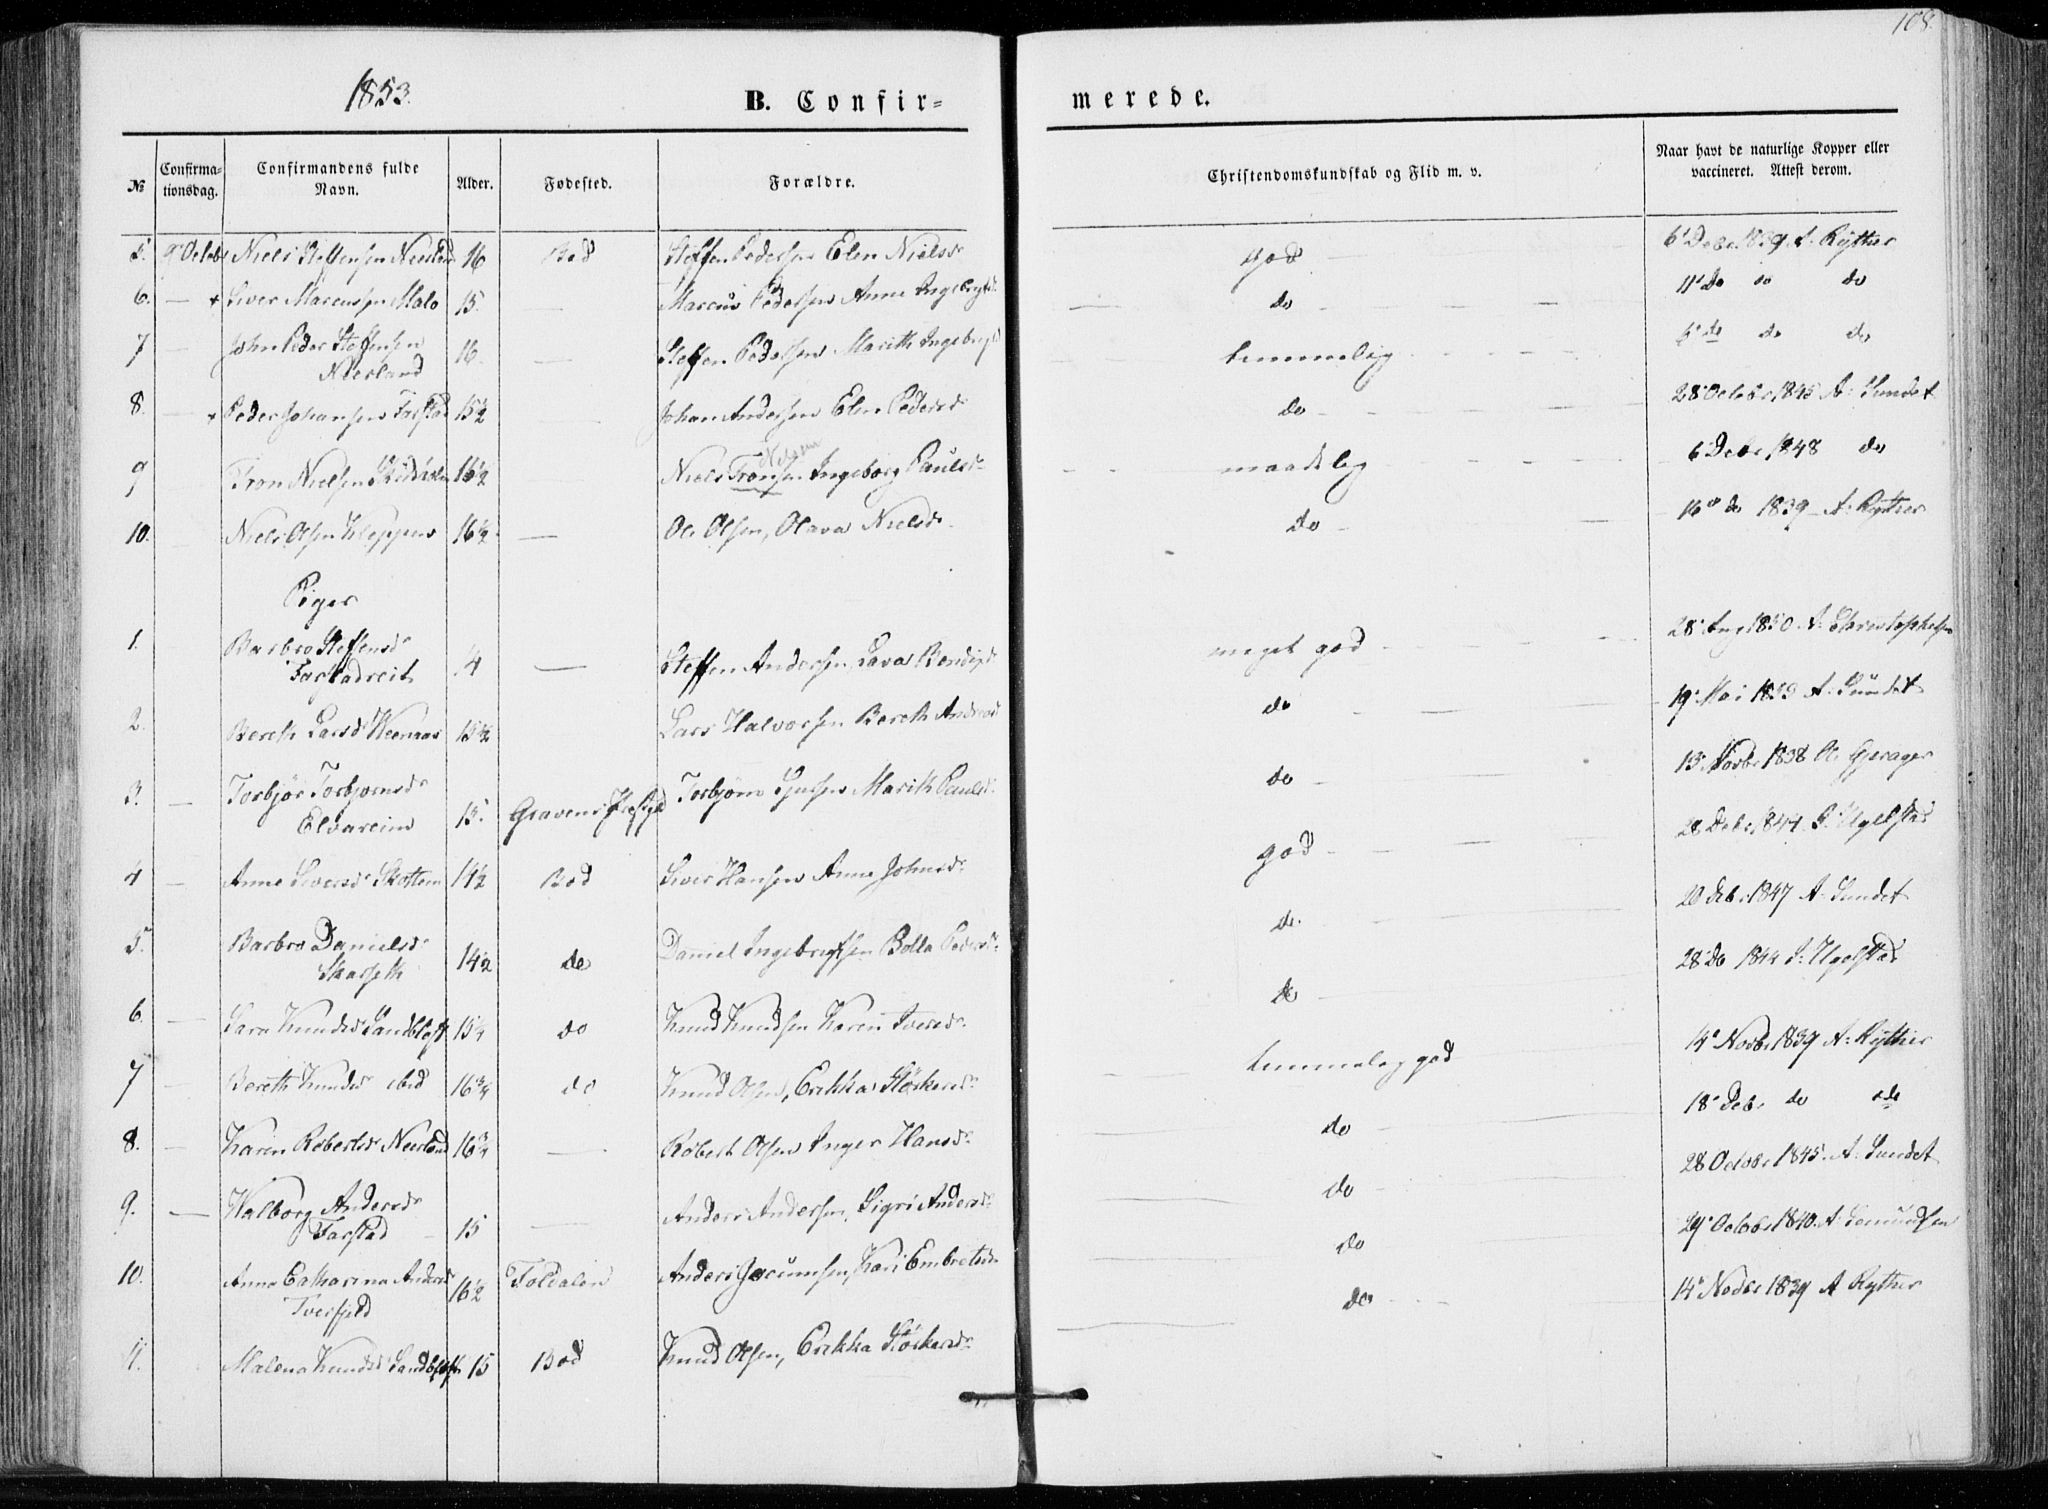 108.
1853.
B. Confir-
merede.
№
Confirma-
tionsdag.
Confirmandens fulde
Navn.
Alder.
Fødested.
Forældre.
Christendomskundskab og Flid m. v.
Naar havt de naturlige Kopper eller
vaccineret. Attest derom.
5. Niels Steffensen Neerland 16 Bod Steffen Pedersen Elen Nielsd. God 6 Debr 1839 A. Rÿther
6. — + Siver Marcussen Malo 15. — Marcus Pedersen Anne Ingebrgtd. do 11 Do do do
7 — John Peder Steffensen
Neerland 16 — Steffen Pedersen Marith Ingebrgtd temmelig 6 do do do
8. — + Peder Johansen Farstad 15½ — Johan Andersen Elen Pedersd do 28 Octobr 1845 A. Sundet
Nelsen
9 Tron Nielsen 16½ Niels Tronsen Ingeborg Paulsd. maadelig 6 Debr 1848 do
10. Niels Olsen Kleppen 16½ — Ole Olsen, Olava Nielsd. do 16 do 1839 A. Rÿther
Piger
1. Barbro Steffensd.
Farstadreit 14 — Steffen Andersen, Lava Bendixd meget god 28 Aug 1850 A. Christophersen
2. Bereth Larsd Weenaas 15½ Lars Halvorsen Bereth Andersd do 19 Mai 1839 A. Sundet
3. — Torbjør Torbjornsd.
Elvareim 15. Gravens Torbjørn Marith Paulsd. do 13 Novbr 1838 O. Gjerager
4 — Anne Siversd. Skottem 14½ Bod Siver Hansen Anne Johnsd. god 28 Debr 1844 P. Ugelstad
5. Barbro Danielsd.
Skarseth 14½ do Daniel Ingebrigtsen Bolla Pedersd. do. 20 Debr 1847 A. Sundet
6. — Sara Knudsd Sandbløst 15¼ do Knud Knudsen Karen Iversd. do 28 Do 1844 P. Ugelstad
7 — Bereth Knudsd ibid 16¾ do Knud Olsen, Erikka Størkersd. temmelig god 14 Novbr 1839 A. Rÿther
8. — Karen Robertsd Neerland 16¾ — Robert Olsen Inger Hansd. do 18 Debr do do
9. — Walborg Andersd.
Farstad 15 — Anders Andersen, Sigri Andersd. do 28 Octobr 1845. A. Sundet
10. Anne Catharina Andersd
Tverfjeld 16½ Foldalen Anders Kari Embretsd. do 29 Octobr 1840. A. Semundsen
11. Malena Knudsd Sandbløst 15 Bod Knud Olsen, Erikka Størkersd. do 14 Novbr 1839 A Rÿther